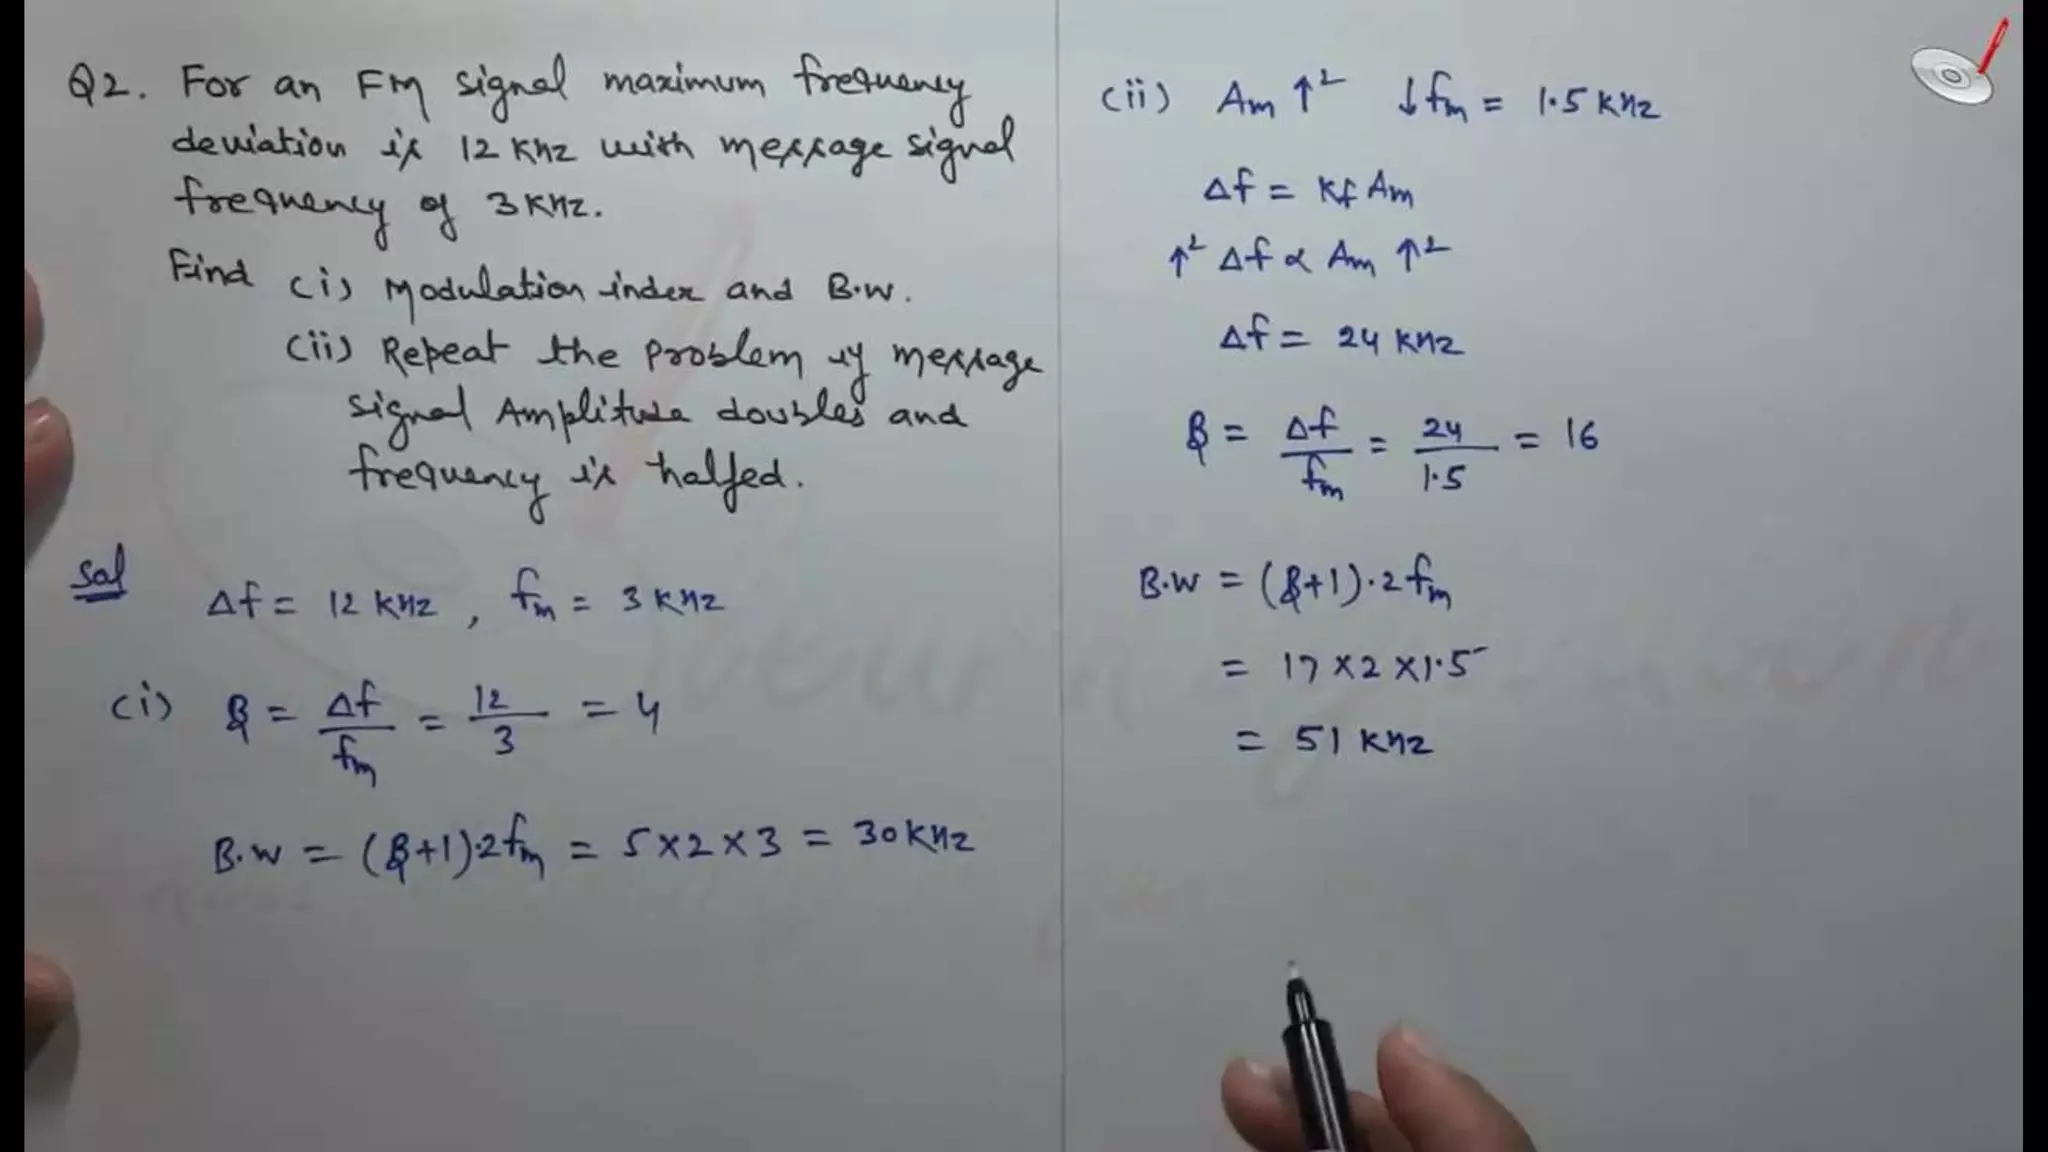 Q2. For an FM signal maximum frequency
deviation is 12 KHz with message signal
frequency of 3 KHz.
Find (i) Modulation index and B.W.
(ii) Repeat the problem if message
signal Amplitude doubles and
frequency is halfed.
Sol
Δf = 12 KHz, fm = 3 KHz
(i) β = Δf/fm = 12/3 = 4
B.W = (β+1)·2fm = 5×2×3 = 30 KHz
(ii) Am ↑² ↓fm = 1.5 KHz
Δf = Kf Am
↑² Δf ∝ Am ↑²
Δf = 24 KHz
β = Δf/fm = 24/1.5 = 16
B.W = (β+1)·2fm
= 17×2×1.5
= 51 KHz